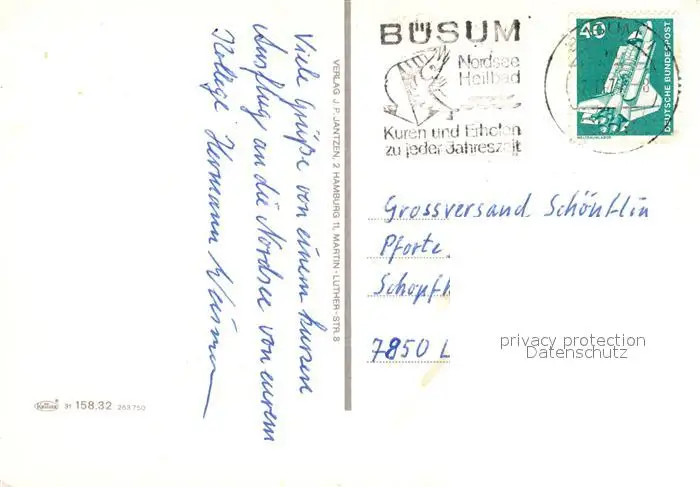 Viele Grüße von einem kurzen
Ausflug an die Nordsee von eurem
Kollege Hermann
VERLAG J. P. JANTZEN, 2 HAMBURG 11, MARTIN-LUTHER-STR. 8
BÜSUM
Nordsee
Heilbad
Kuren und Erholen
zu jeder Jahreszeit
40
DEUTSCHE BUNDESPOST
WELTRAUMLABOR
Grossversand Schönflin
Pforte
Schopfh
7850 L
privacy protection
Datenschutz
Krüger 31 158.32 263750